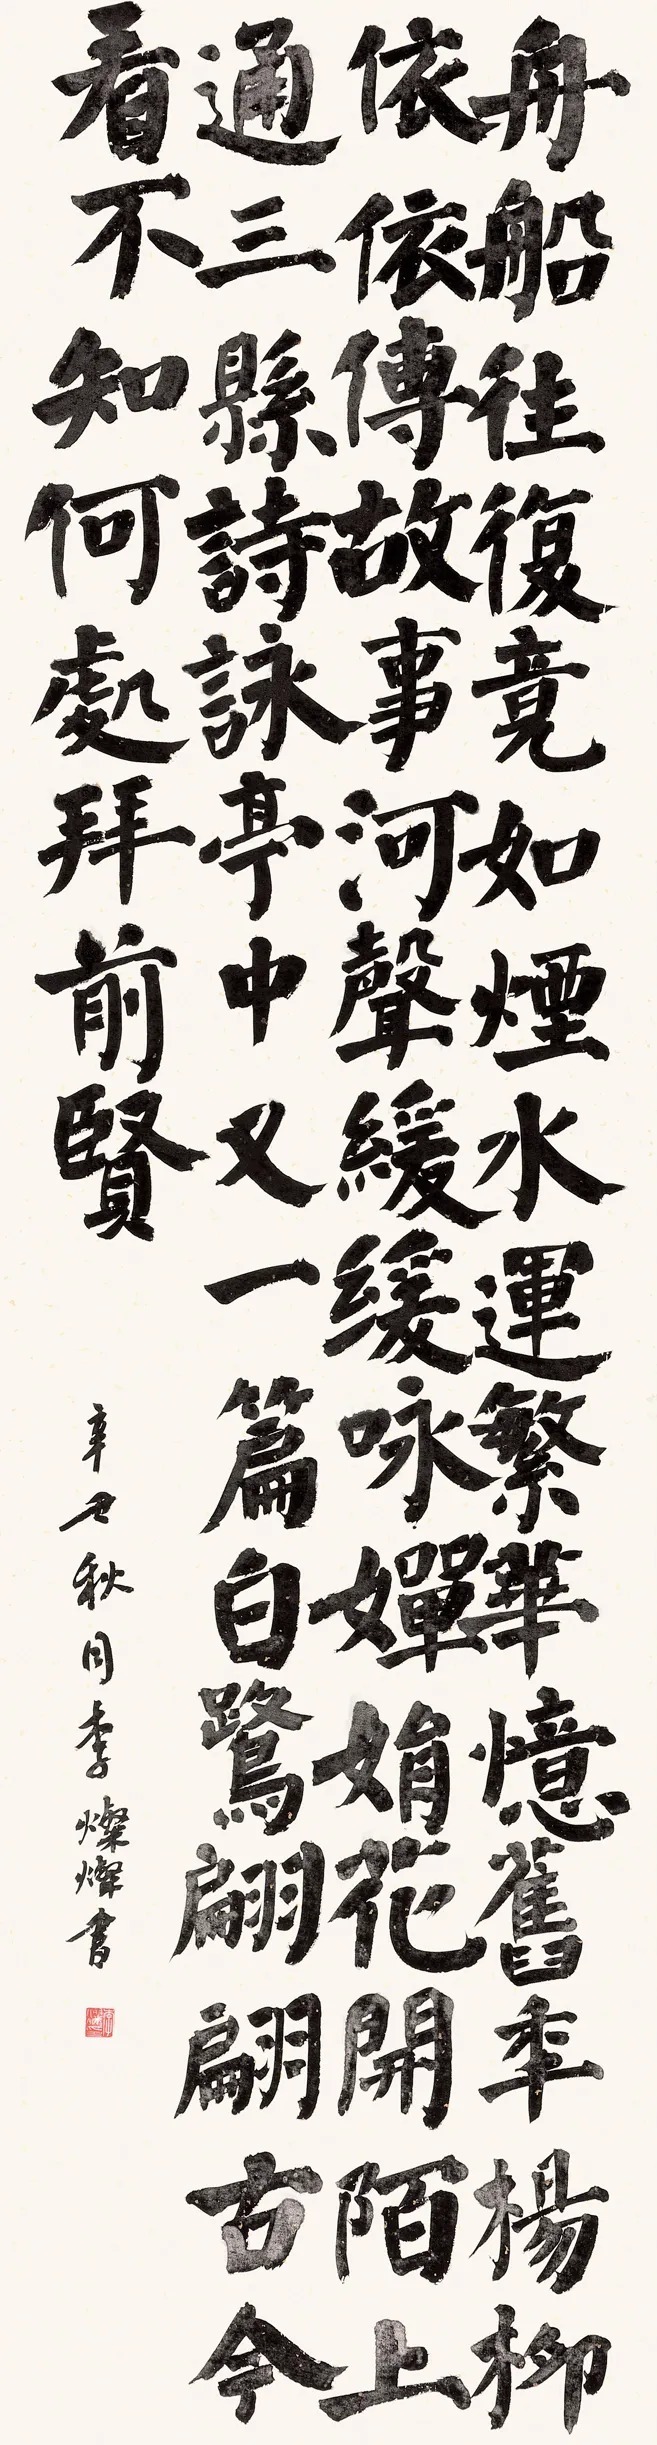 舟船往復竟如煙水運繁華憶舊年楊柳
依依傳故事河聲緩緩咏嬋娟花開陌上
通三縣詩詠亭中又一篇白鷺翩翩古今
看不知何處拜前賢
辛丑秋月李燦燦書